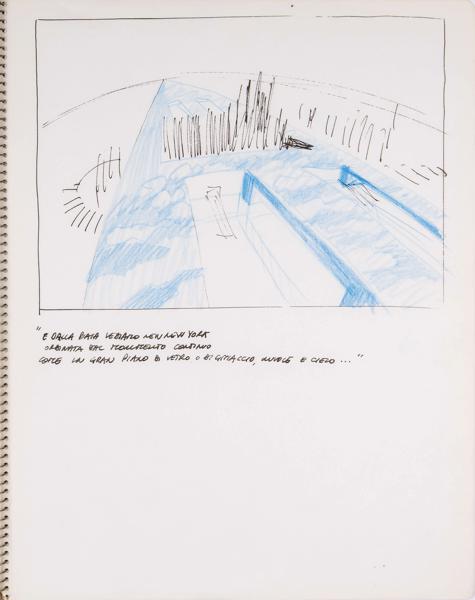 "E DALLA BAIA VEDIAMO NEW NEW YORK
ORDINATA DAL MONUMENTO CONTINUO
COME UN GRAN PIANO DI VETRO O DI GHIACCIO, NUVOLE E CIELO ..."